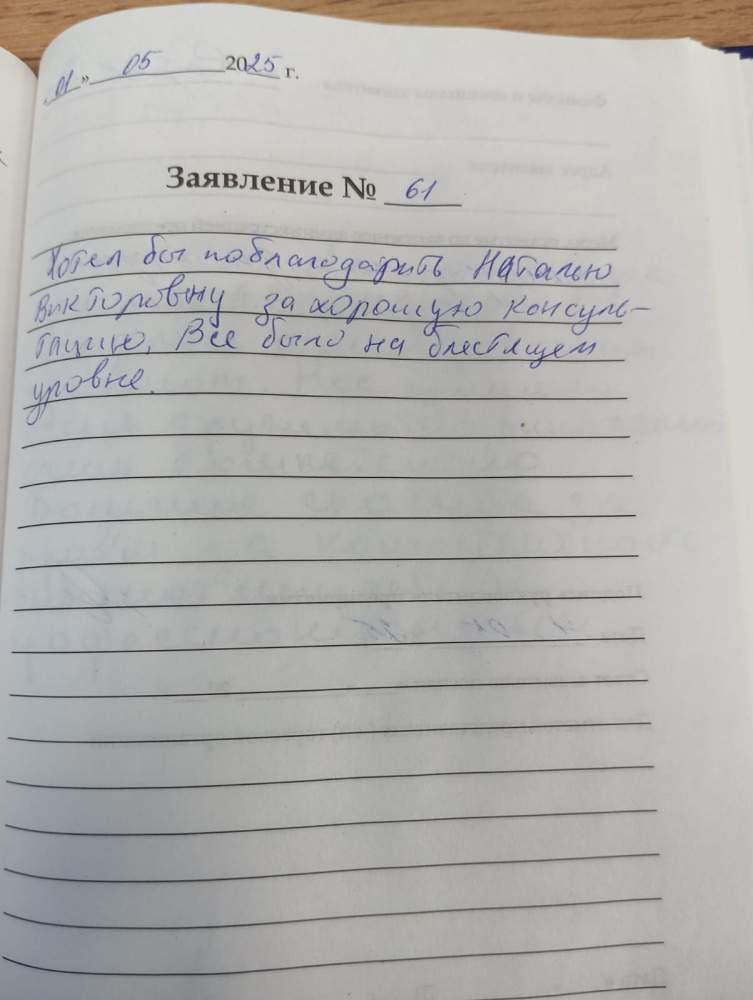 «01» 05 2025 г.
Заявление № 61
Хотел бы поблагодарить Наталью
Викторовну за хорошую консуль-
тацию. Все было на блестящем
уровне.